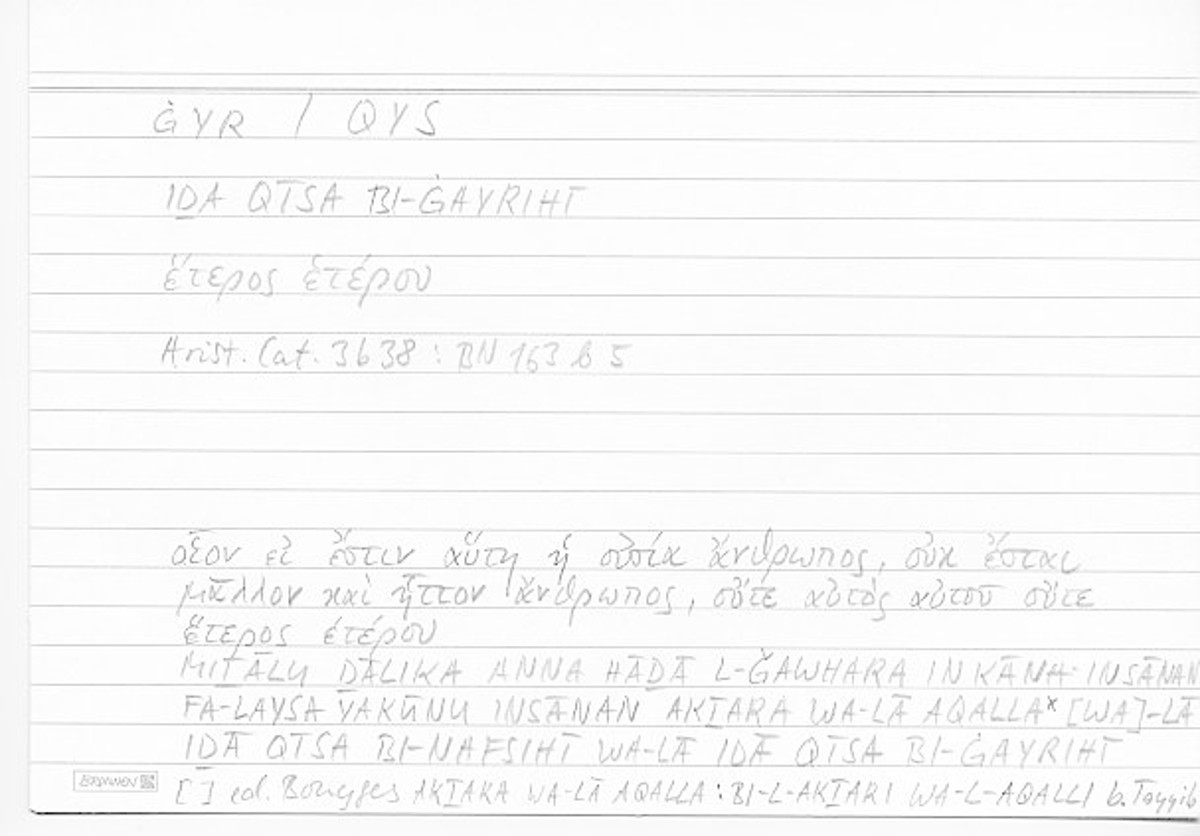 ĠYR / QYS
IḎA QĪSA BI-ĠAYRIHĪ
ἕτερος ἑτέρου
Arist. Cat. 3b38 : BN 163 b 5
οἷον εἰ ἔστιν αὕτη ἡ οὐσία ἄνθρωπος, οὐκ ἔσται
μᾶλλον καὶ ἧττον ἄνθρωπος, οὔτε αὐτὸς αὑτοῦ οὔτε
ἕτερος ἑτέρου
MIṮĀLU ḎĀLIKA ANNA HĀḎĀ L-ǦAWHARA IN KĀNA INSĀNAN
FA-LAYSA YAKŪNU INSĀNAN AKṮARA WA-LĀ AQALLAˣ [WA]-LĀ
IḎĀ QĪSA BI-NAFSIHĪ WA-LĀ IḎĀ QĪSA BI-ĠAYRIHĪ
[ ] ed. Bouyges AKṮARA WA-LĀ AQALLA : BI-L-AKṮARI WA-L-AQALLI b. Ṭayyib
BRUNNEN